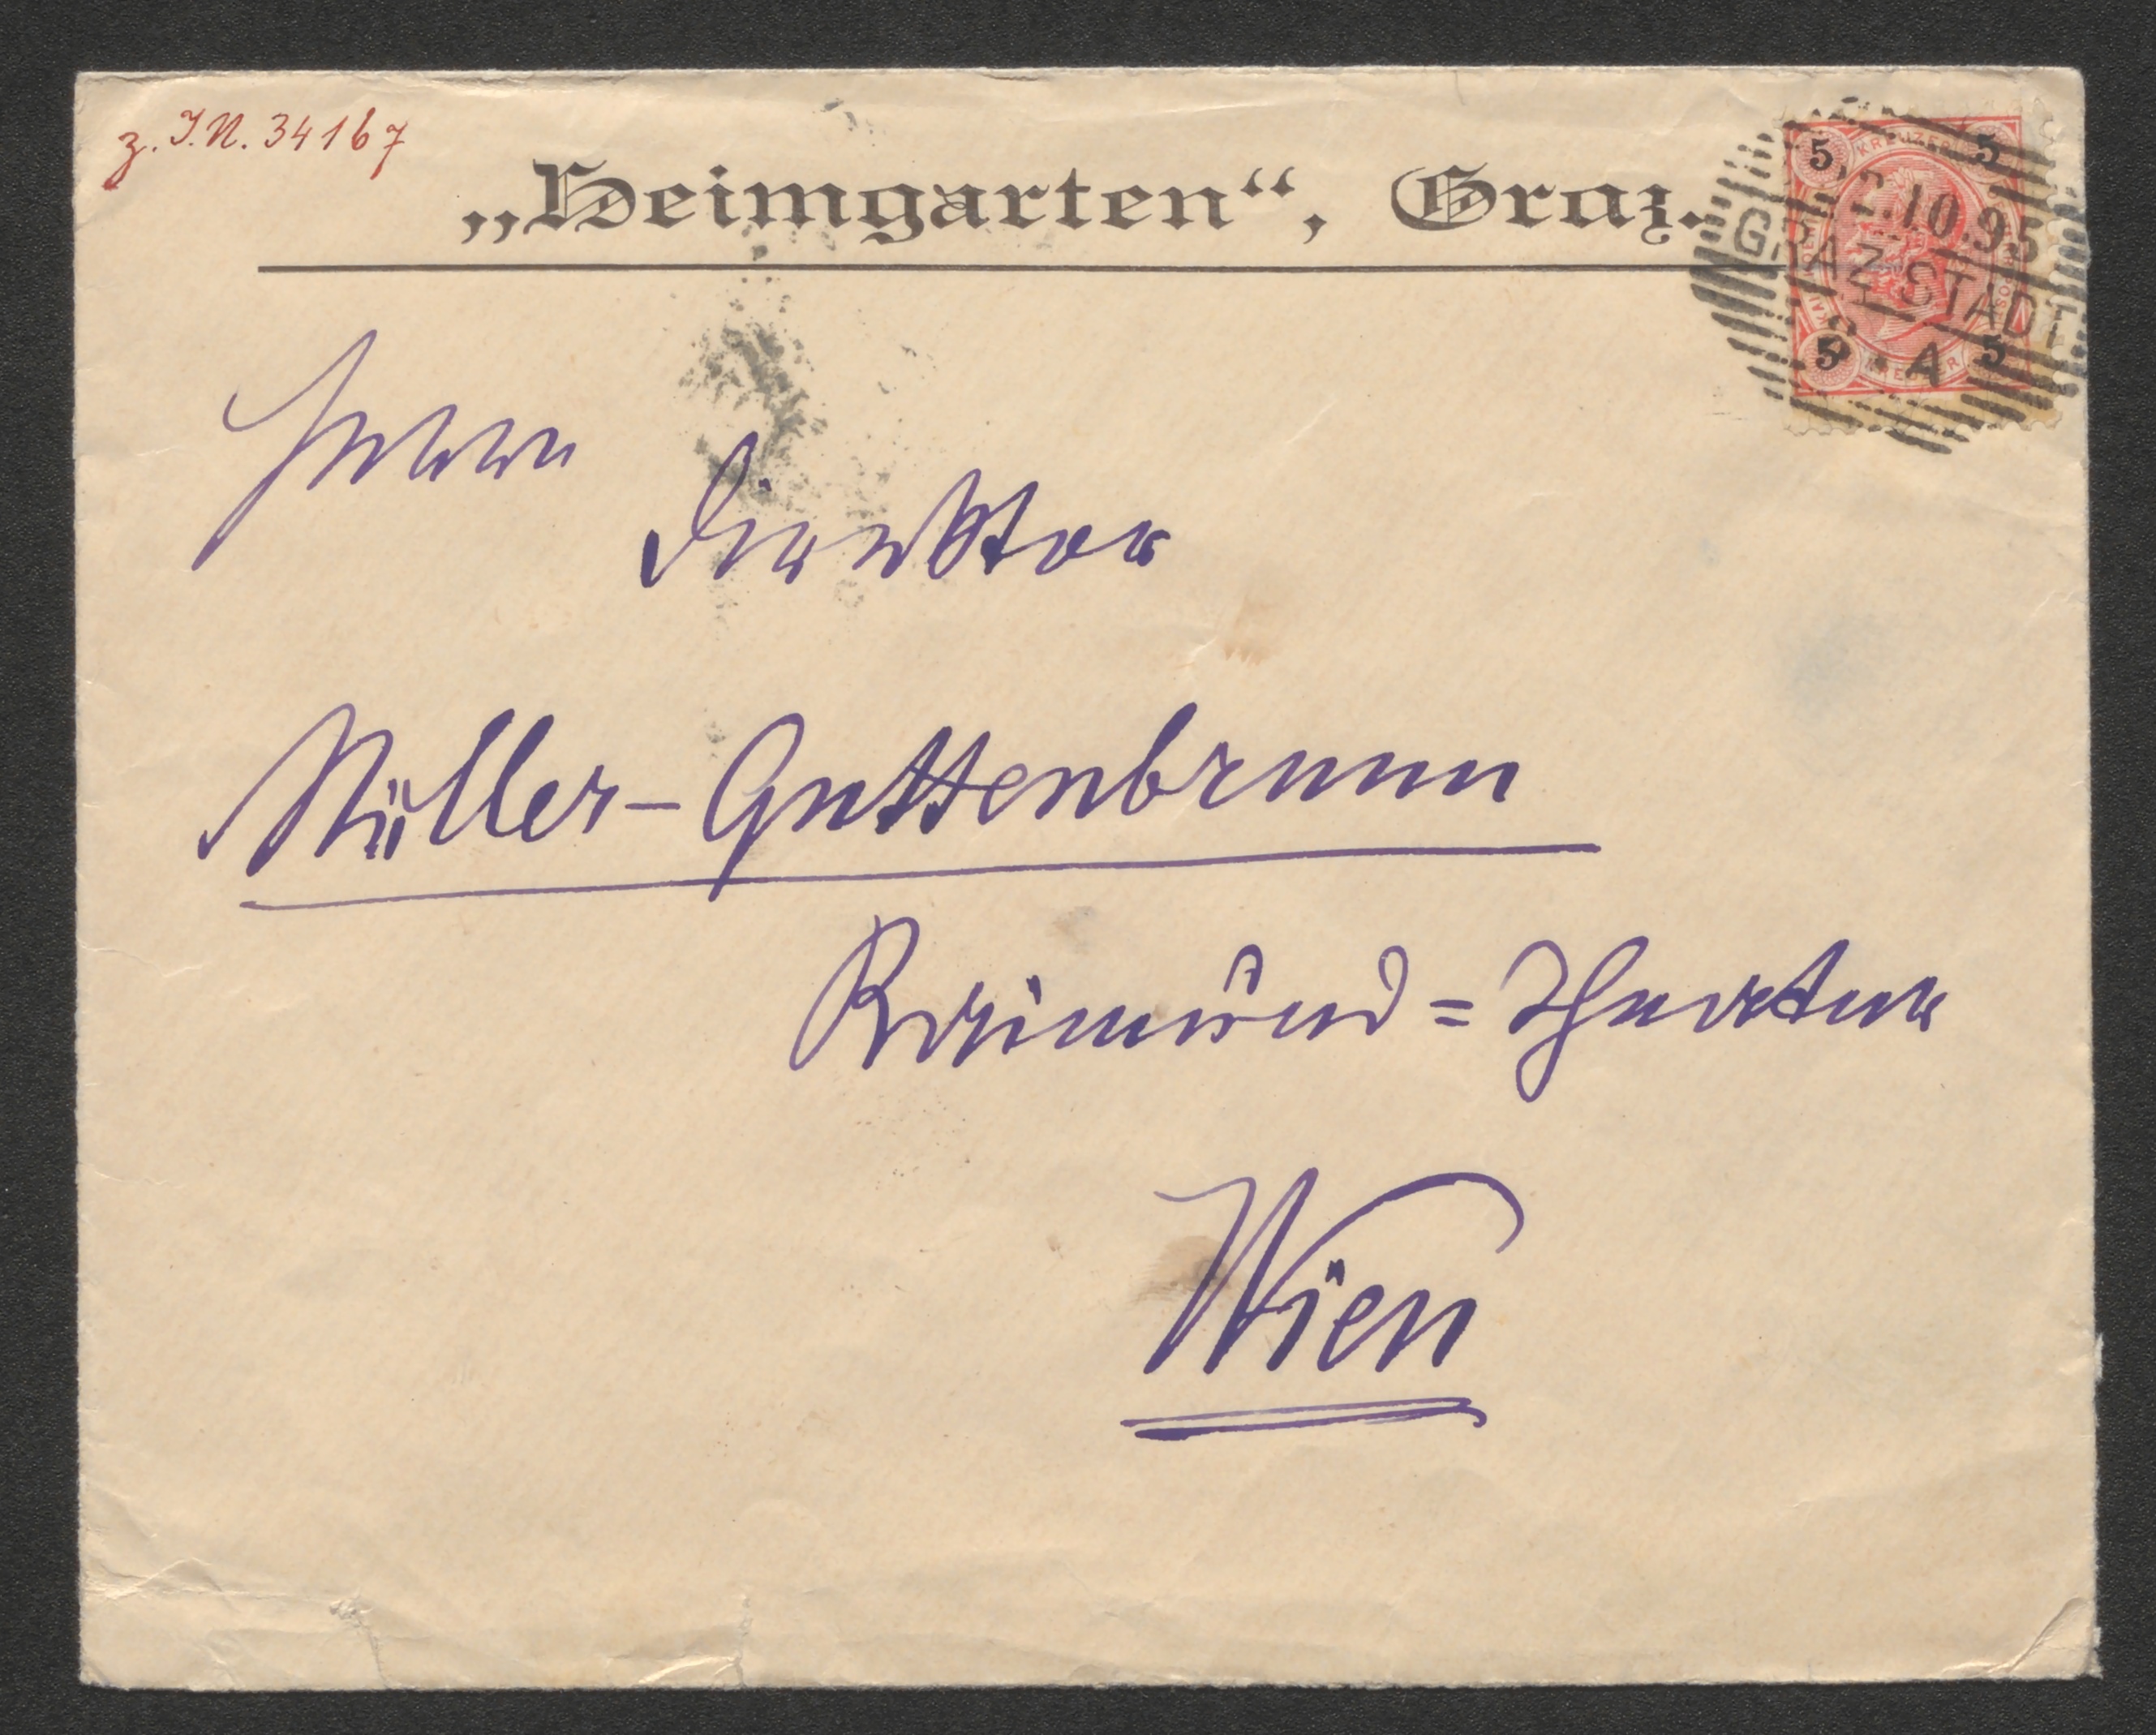 z. I.N. 34167
„Heimgarten“, Graz.
5 KREUZER 5
2.10.95
GRAZ STADT
5 KREUZER 5
A
Herrn
Direktor
Müller-Guttenbrunn
Raimund=Theater
Wien